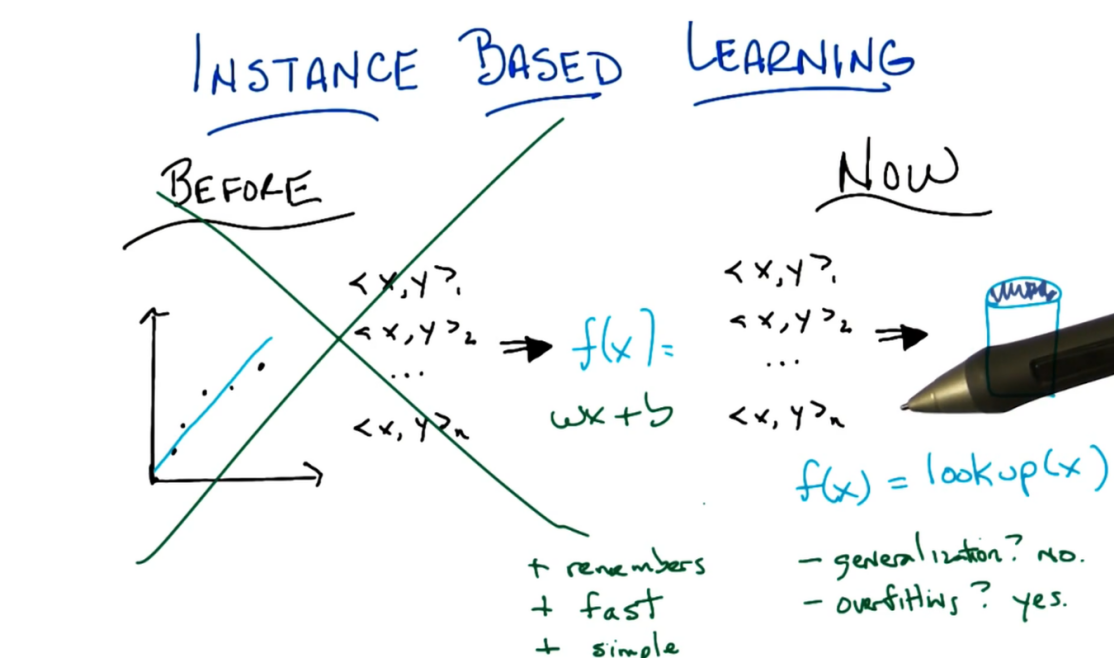 INSTANCE BASED LEARNING
BEFORE
<x,y>₁
<x,y>₂
...
<x,y>ₙ
f(x)=
wx+b
NOW
<x,y>₁
<x,y>₂
...
<x,y>ₙ
f(x) = lookup(x)
+ remembers
+ fast
+ simple
- generalization? no.
- overfitting? yes.